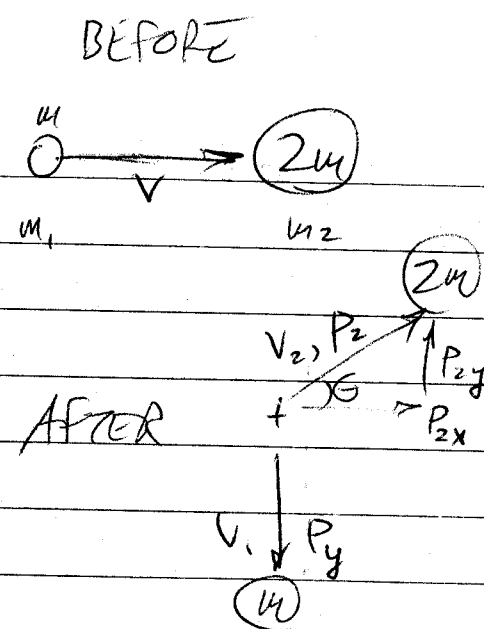 BEFORE
m
2m
V
m₁
m₂
2m
V₂, P₂
P₂y
θ
+
P₂x
AFTER
V₁
Py
m